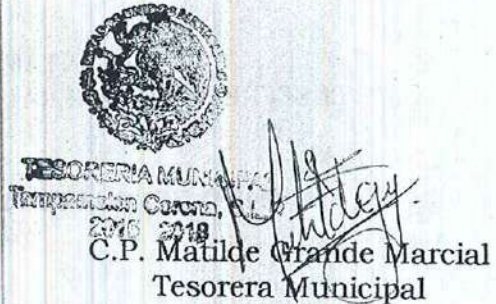 TESORERIA MUNICIPAL
Tampamolon Corona, S.L.P.
2015 2018
C.P. Matilde Grande Marcial
Tesorera Municipal